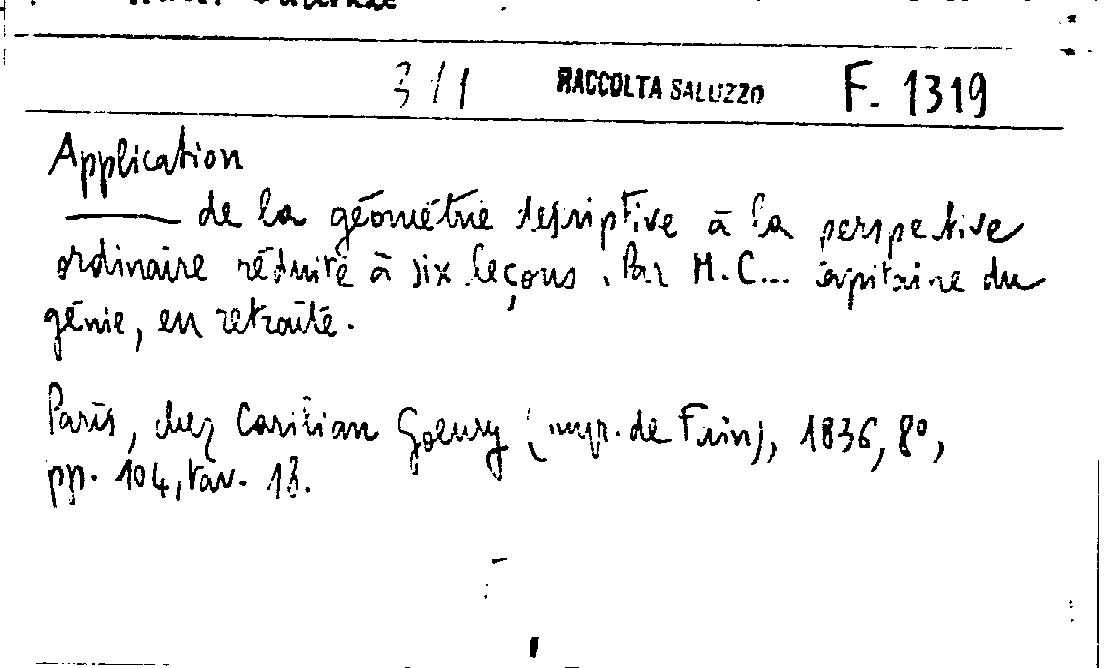 311 RACCOLTA SALUZZO F. 1319
Application
——— de la géométrie descriptive à la perspective
ordinaire réduite à six leçons. Par M.C... capitaine du
génie, en retraite.
Paris, chez Carilian Goeury (impr. de Fain), 1836, 8º,
pp. 104, tav. 13.